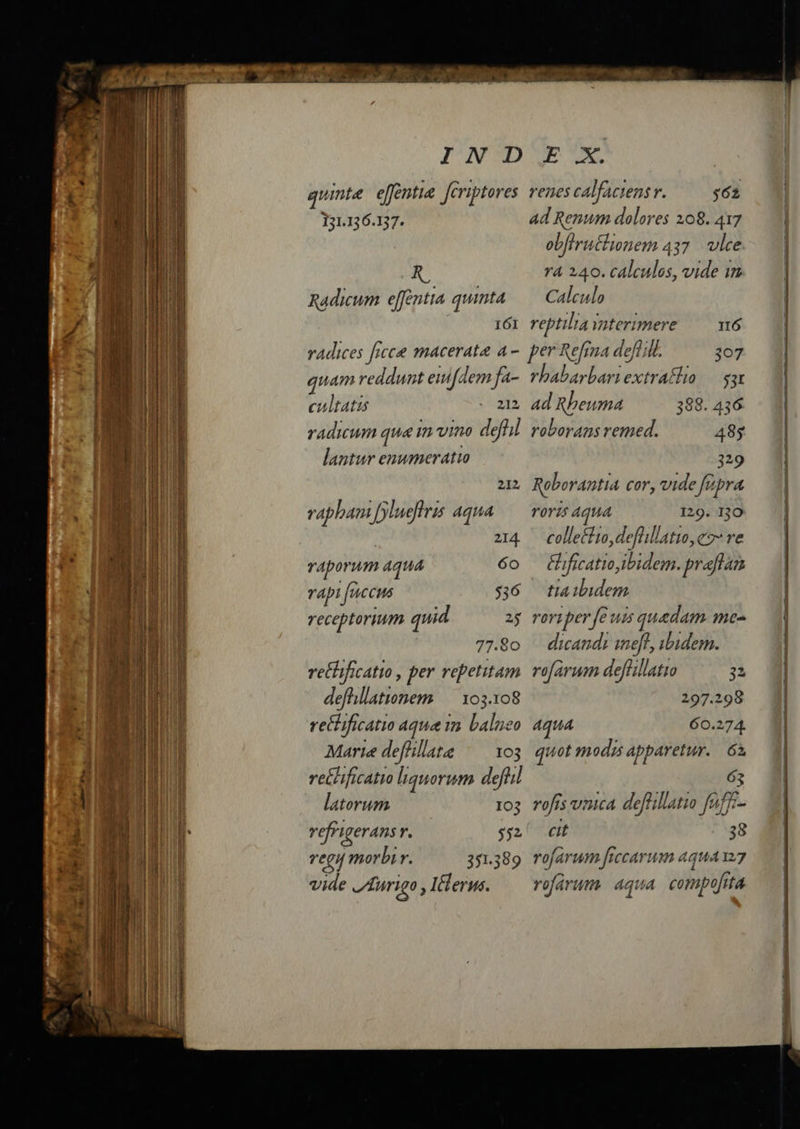 INDEX.
quintæ eſſentiæ ſcriptores
131.136.137.
R
Radicum eſſentia quinta
161
radices ſiccæ maceratæ a-
quam reddunt eiuſdem fa-
cultatis 212
radicum quæ in vino deſtil
lantur enumeratio
212
raphani ſylueſtris aqua
214
raporum aqua 60
rapi ſuccus 536
receptorium quid 25
77.80
rectificatio, per repetitam
deſtillationem 103.108
rectificatio aquæ in balneo
Mariæ deſtillatæ 103
rectificatio liquorum deſtil
latorum 103
refrigerans r. 552
regij morbi r. 351.389
vide Aurigo, Icterus.
renes calfaciens r. 562
ad Renum dolores 208. 417
obſtructionem 437 vlce
ra 240. calculos, vide in
Calculo
reptilia interimere 116
per Reſina deſtill. 307
rhabarbari extractio 531
ad Rheuma 388. 436
roborans remed. 485
329
Roborantia cor, vide ſupra
roris aqua 129. 130
collectio, deſtillatio, & re
ctificatio, ibidem. præſtan
tia ibidem
rori per ſe uis quædam me-
dicandi ineſt, ibidem.
roſarum deſtillatio 32
297.298
aqua 60.274
quot modis apparetur. 62
63
roſis vnica deſtillatio ſuffi-
cit 38
roſarum ſiccarum aqua 127
roſarum aqua compoſita